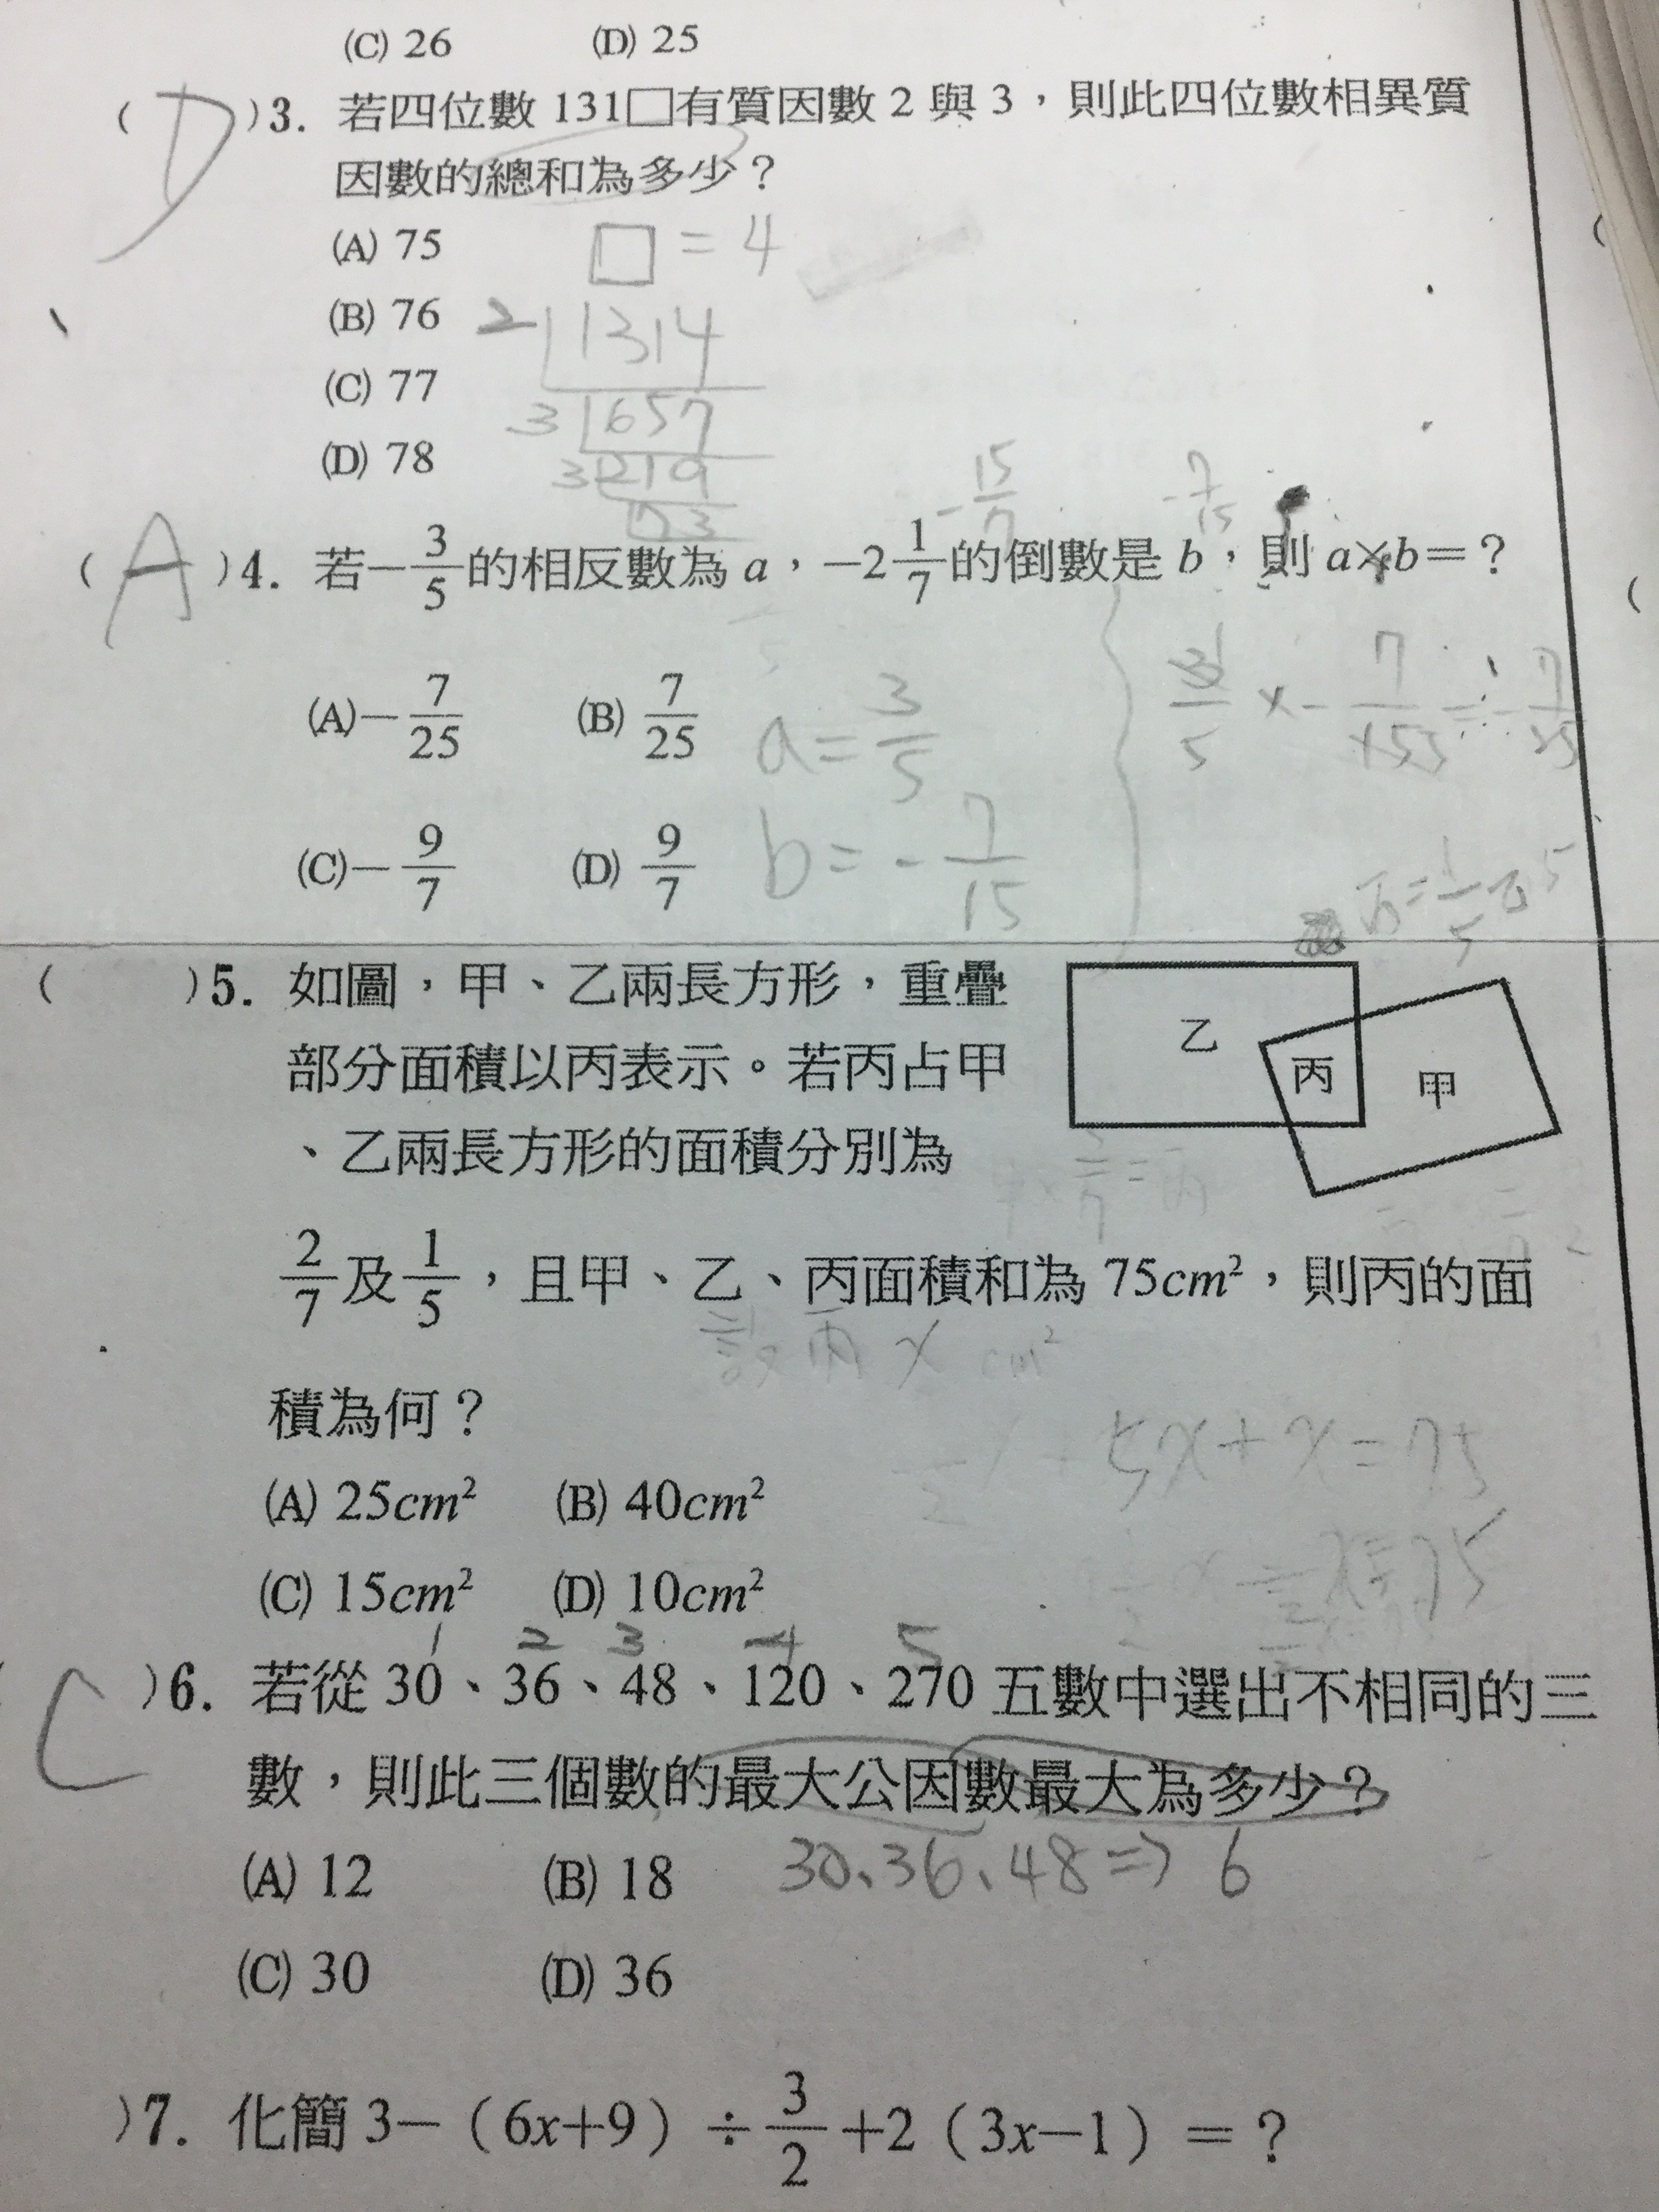 (C) 26 (D) 25
( D )3. 若四位數 131□有質因數 2 與 3，則此四位數相異質
因數的總和為多少？
(A) 75 □ = 4
(B) 76 2 1314
(C) 77 3 657
(D) 78 3 219
73
-15/7 -7/15
( A )4. 若−3/5的相反數為 a，−2 1/7的倒數是 b，則 a×b＝？
(A)−7/25 (B) 7/25 a = 3/5
(C)−9/7 (D) 9/7 b = -7/15
丙=1/5乙
( )5. 如圖，甲、乙兩長方形，重疊
部分面積以丙表示。若丙占甲
、乙兩長方形的面積分別為
乙 丙 甲
2/7及1/5，且甲、乙、丙面積和為 75cm²，則丙的面
設丙 x cm²
積為何？
5x+x=75
(A) 25cm² (B) 40cm²
(C) 15cm² (D) 10cm²
1 2 3 4 5
( C )6. 若從 30、36、48、120、270 五數中選出不相同的三
數，則此三個數的最大公因數最大為多少？
30、36、48⇒ 6
(A) 12 (B) 18
(C) 30 (D) 36
)7. 化簡 3−（6x+9）÷3/2+2（3x−1）＝？